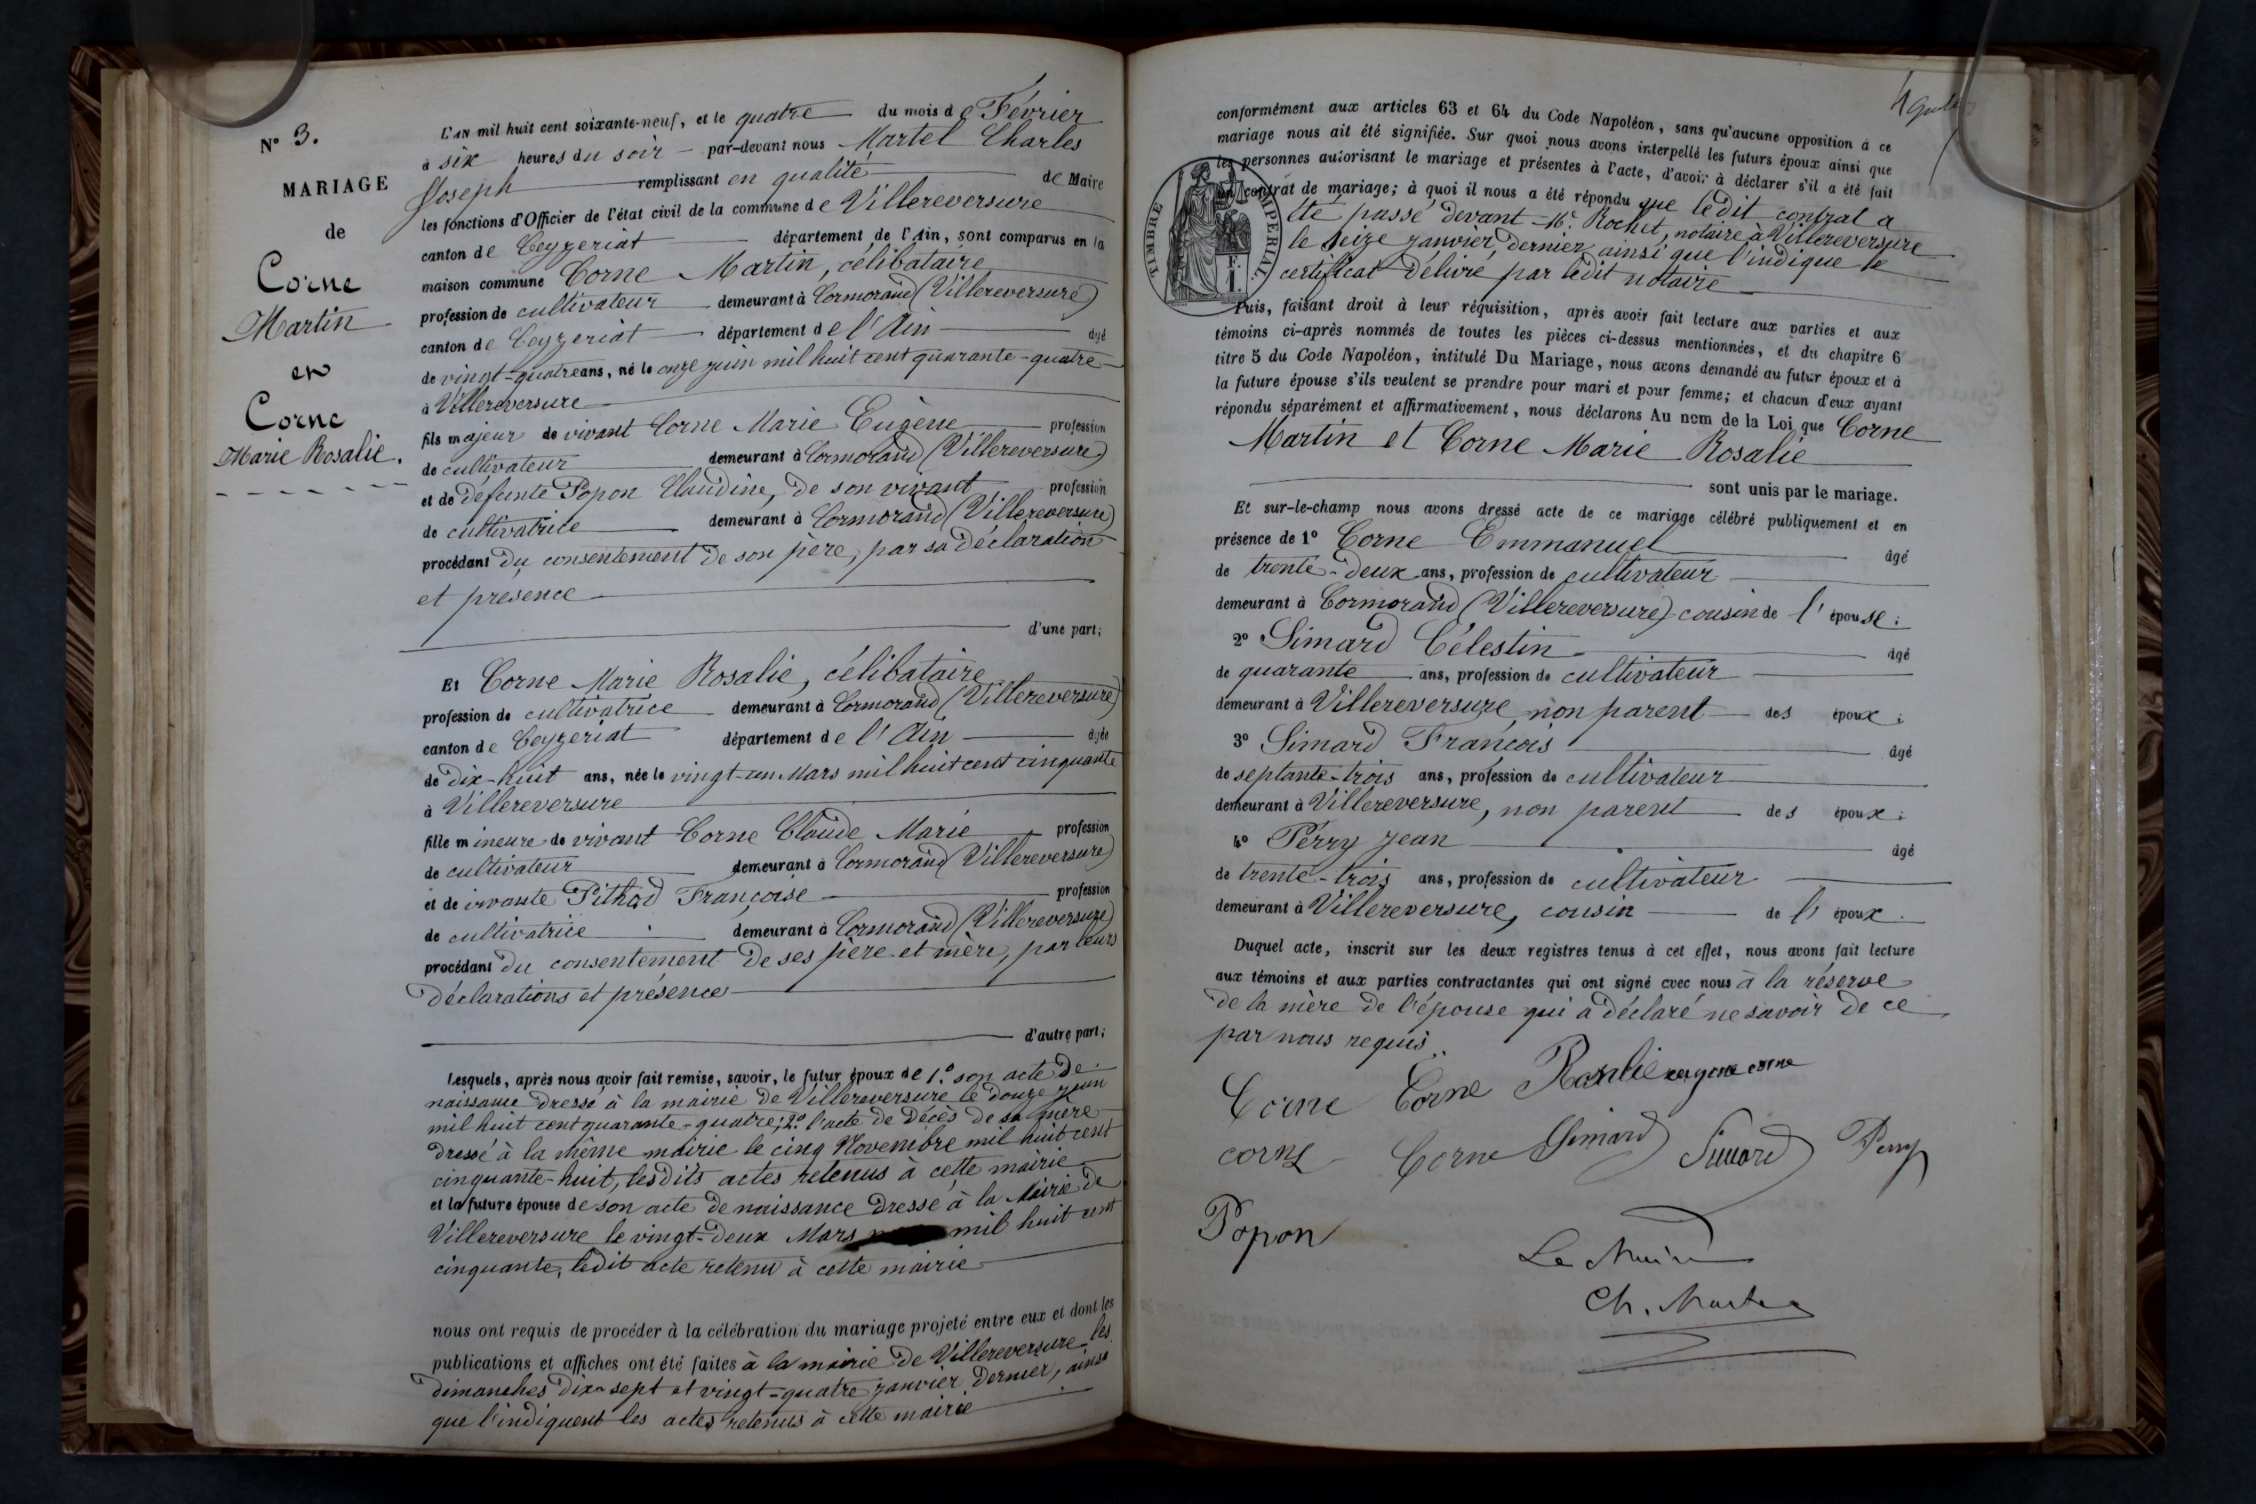 N° 3.
MARIAGE
de
Corne
Martin
et
Corne
Marie Rosalie.
L'AN mil huit cent soixante-neuf, et le quatre du mois de Février
à six heures du soir par-devant nous Martel Charles
Joseph remplissant en qualité de Maire
les fonctions d'Officier de l'état civil de la commune de Villereversure
canton de Ceyzeriat département de l'Ain, sont comparus en la
maison commune Corne Martin, célibataire
profession de cultivateur demeurant à Cormorand (Villereversure)
canton de Ceyzeriat département de l'Ain âgé
de vingt-quatre ans, né le onze juin mil huit cent quarante-quatre
à Villereversure
fils majeur de vivant Corne Marie Eugène profession
de cultivateur demeurant à Cormorand (Villereversure)
et de défunte Popon Claudine, de son vivant profession
de cultivatrice demeurant à Cormorand (Villereversure)
procédant du consentement de son père, par sa déclaration
et présence
d'une part;
Et Corne Marie Rosalie, célibataire
profession de cultivatrice demeurant à Cormorand (Villereversure)
canton de Ceyzeriat département de l'Ain âgée
de dix-huit ans, née le vingt-un Mars mil huit cent cinquante
à Villereversure
fille mineure de vivant Corne Claude Marie profession
de cultivateur demeurant à Cormorand (Villereversure)
et de vivante Pithod Françoise profession
de cultivatrice demeurant à Cormorand (Villereversure)
procédant du consentement de ses père et mère, par leurs
déclarations et présence
d'autre part;
Lesquels, après nous avoir fait remise, savoir, le futur époux de 1.° son acte de
naissance dressé à la mairie de Villereversure le douze juin
mil huit cent quarante-quatre; 2.° l'acte de décès de sa mère
dressé à la même mairie le cinq Novembre mil huit cent
cinquante-huit, lesdits actes retenus à cette mairie
et la future épouse de son acte de naissance dressé à la Mairie de
Villereversure le vingt-deux Mars mil huit cent
cinquante, ledit acte retenu à cette mairie
nous ont requis de procéder à la célébration du mariage projeté entre eux et dont les
publications et affiches ont été faites à la mairie de Villereversure les
dimanches dix-sept et vingt-quatre janvier dernier, ainsi
que l'indiquent les actes retenus à cette mairie
4
conformément aux articles 63 et 64 du Code Napoléon, sans qu'aucune opposition à ce
mariage nous ait été signifiée. Sur quoi nous avons interpellé les futurs époux ainsi que
les personnes autorisant le mariage et présentes à l'acte, d'avoir à déclarer s'il a été fait
un contrat de mariage; à quoi il nous a été répondu que ledit contrat a
été passé devant Me. Rochet, notaire à Villereversure
le seize janvier dernier ainsi que l'indique le
certificat délivré par ledit notaire
TIMBRE IMPERIAL
Puis, faisant droit à leur réquisition, après avoir fait lecture aux parties et aux
témoins ci-après nommés de toutes les pièces ci-dessus mentionnées, et du chapitre 6
titre 5 du Code Napoléon, intitulé Du Mariage, nous avons demandé au futur époux et à
la future épouse s'ils veulent se prendre pour mari et pour femme; et chacun d'eux ayant
répondu séparément et affirmativement, nous déclarons Au nom de la Loi que Corne
Martin et Corne Marie Rosalie
sont unis par le mariage.
Et sur-le-champ nous avons dressé acte de ce mariage célébré publiquement et en
présence de 1° Corne Emmanuel âgé
de trente-deux ans, profession de cultivateur
demeurant à Cormorand (Villereversure) cousin de l'épouse;
2° Simard Célestin âgé
de quarante ans, profession de cultivateur
demeurant à Villereversure non parent des époux;
3° Simard François âgé
de septante-trois ans, profession de cultivateur
demeurant à Villereversure, non parent des époux;
4° Perry Jean âgé
de trente-trois ans, profession de cultivateur
demeurant à Villereversure, cousin de l'époux.
Duquel acte, inscrit sur les deux registres tenus à cet effet, nous avons fait lecture
aux témoins et aux parties contractantes qui ont signé avec nous à la réserve
de la mère de l'épouse qui a déclaré ne savoir de ce
par nous requis.
Corne Corne Rosalie eugene corne
corne Corne Simard Simard Perry
Popon
Le Maire
Ch. Martel